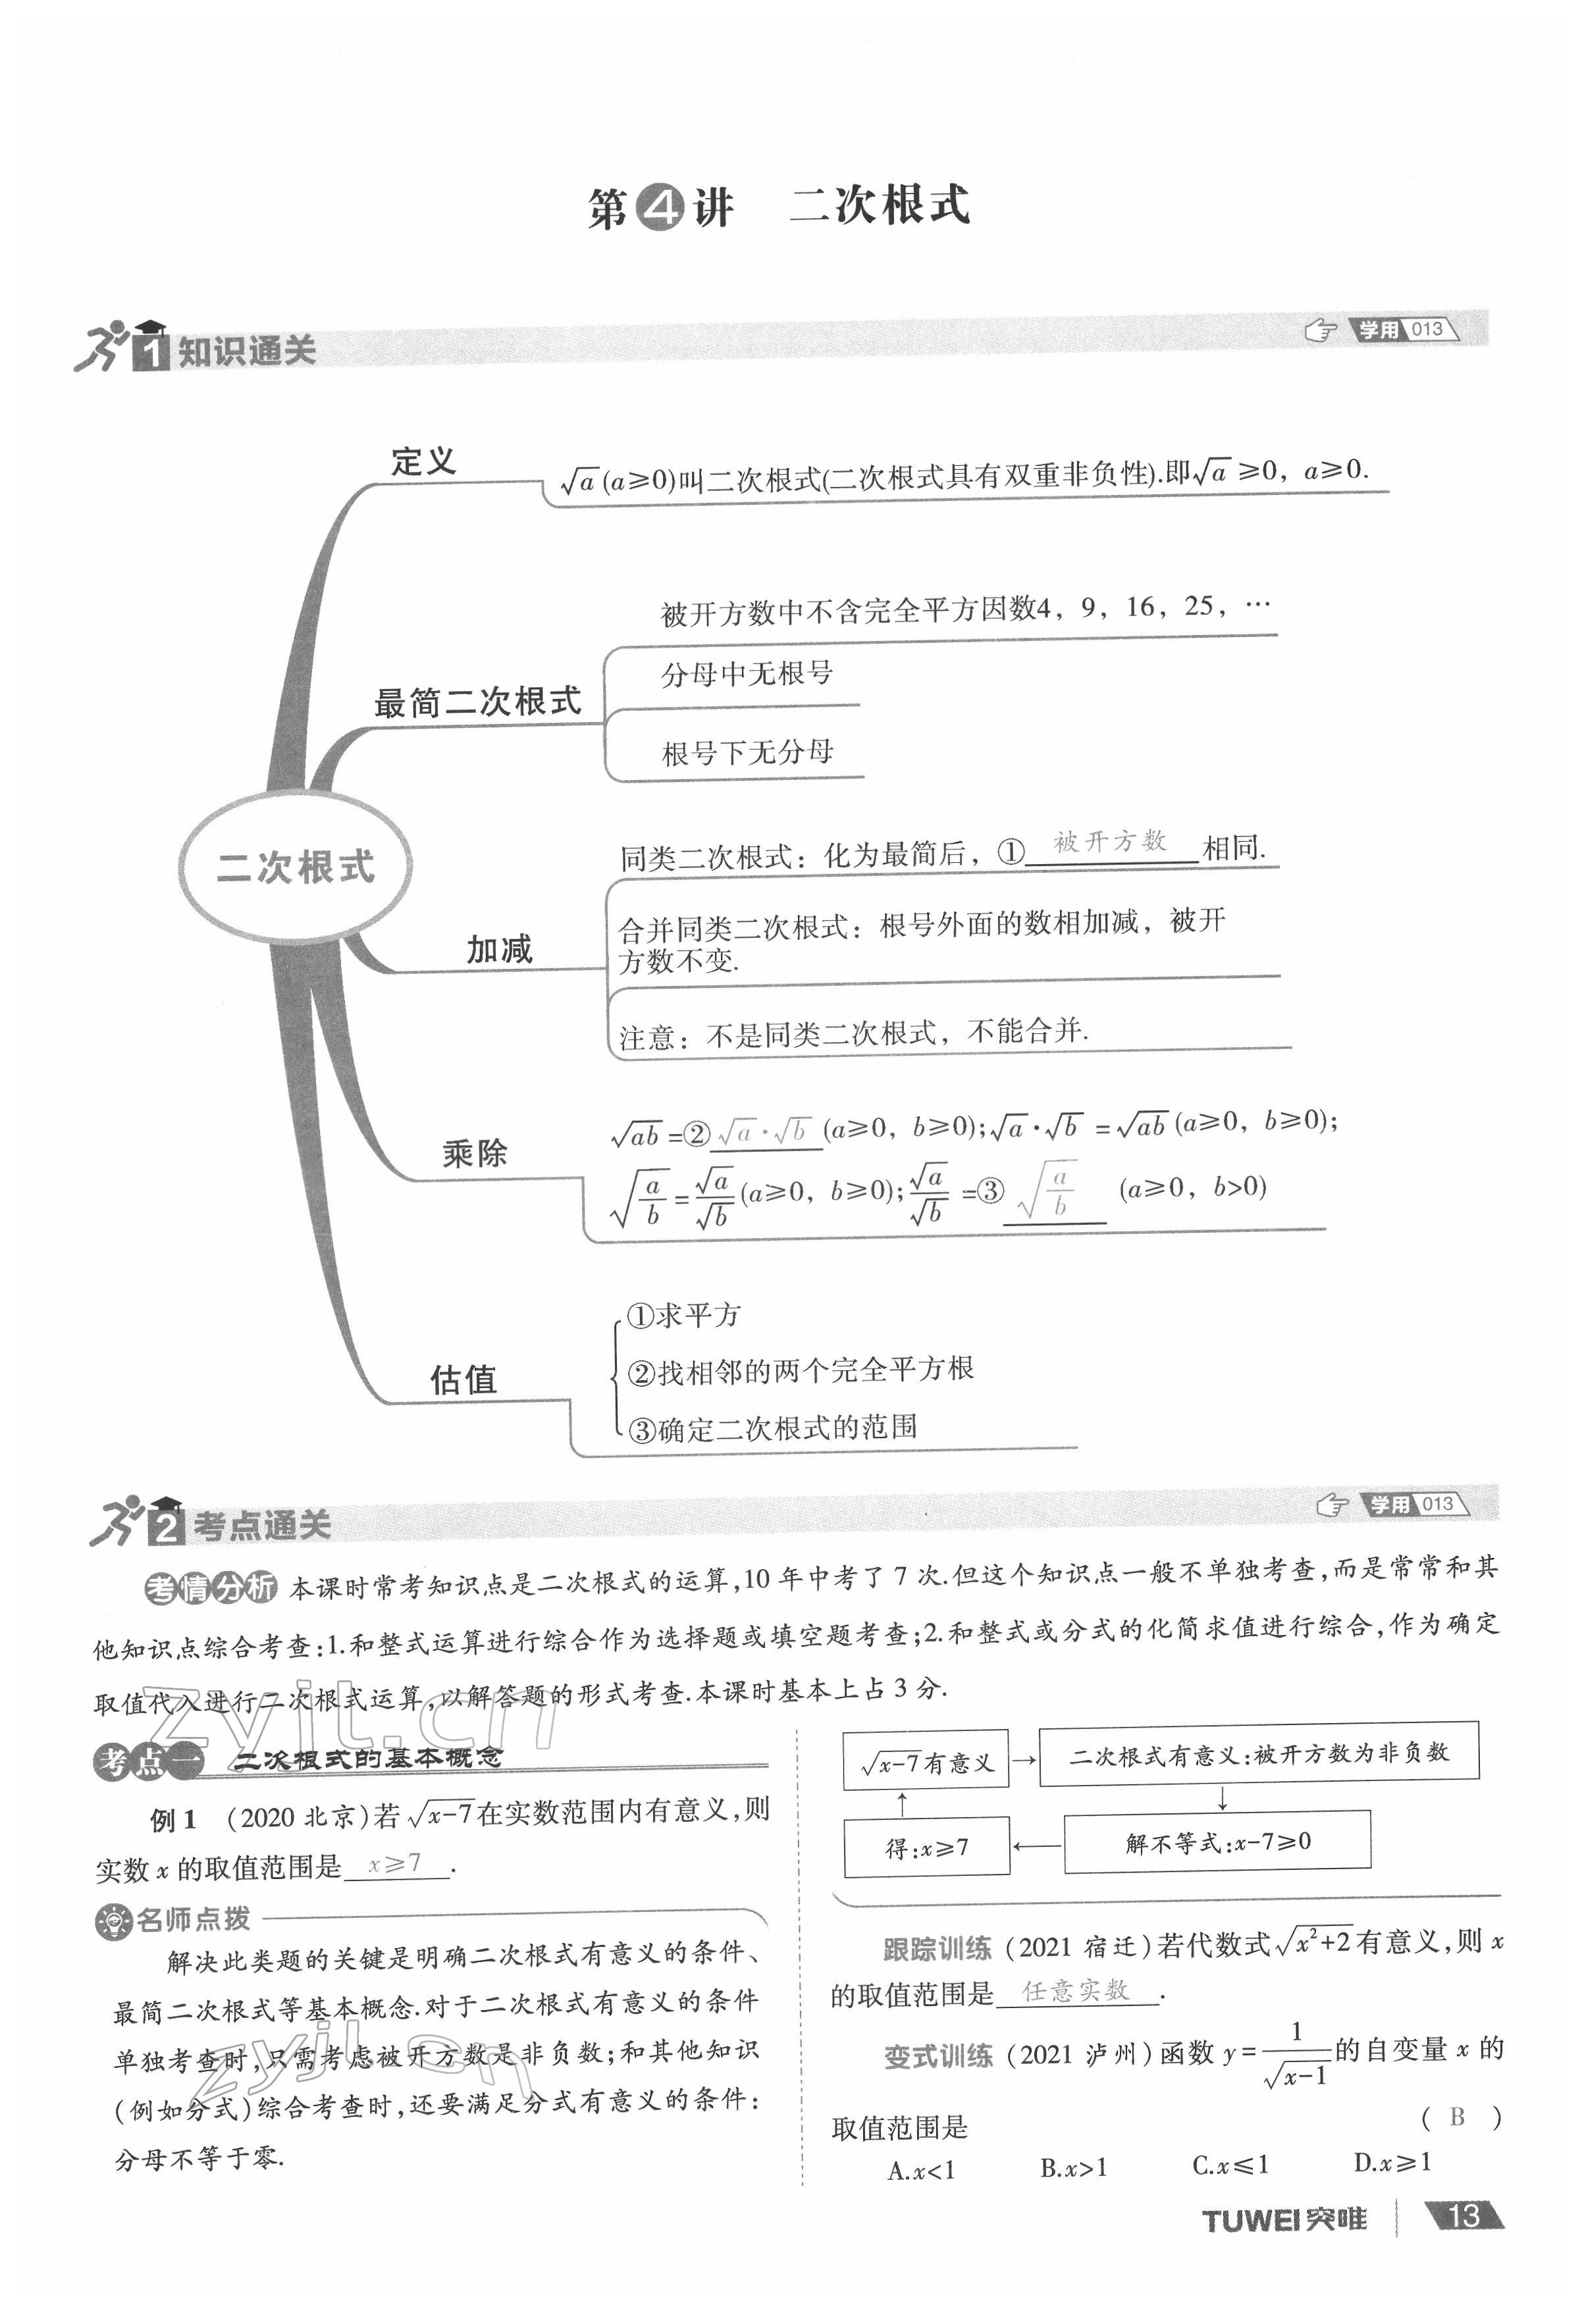 第4讲 二次根式
1 知识通关
学用 013
定义
√a (a≥0)叫二次根式(二次根式具有双重非负性).即√a ≥0, a≥0.
被开方数中不含完全平方因数4, 9, 16, 25, …
分母中无根号
最简二次根式
根号下无分母
二次根式
同类二次根式：化为最简后，①被开方数相同.
合并同类二次根式：根号外面的数相加减，被开
方数不变.
加减
注意：不是同类二次根式，不能合并.
√ab =②√a·√b (a≥0, b≥0);√a·√b =√ab (a≥0, b≥0);
乘除
√(a/b) = √a/√b (a≥0, b≥0); √a/√b =③ √(a/b) (a≥0, b>0)
①求平方
②找相邻的两个完全平方根
估值
③确定二次根式的范围
2 考点通关
学用 013
考情分析 本课时常考知识点是二次根式的运算,10 年中考了 7 次.但这个知识点一般不单独考查,而是常常和其
他知识点综合考查:1.和整式运算进行综合作为选择题或填空题考查;2.和整式或分式的化简求值进行综合,作为确定
取值代入进行二次根式运算,以解答题的形式考查.本课时基本上占 3 分.
zyjl.cn
考点一 二次根式的基本概念
例 1 (2020 北京)若 √(x-7) 在实数范围内有意义,则
实数 x 的取值范围是 x≥7 .
名师点拨
解决此类题的关键是明确二次根式有意义的条件、
最简二次根式等基本概念.对于二次根式有意义的条件
单独考查时,只需考虑被开方数是非负数;和其他知识
(例如分式)综合考查时,还要满足分式有意义的条件:
分母不等于零.
zyjl.cn
√(x-7) 有意义 → 二次根式有意义:被开方数为非负数
↑ ↓
得:x≥7 ← 解不等式:x-7≥0
跟踪训练 (2021 宿迁)若代数式 √(x²+2) 有意义,则 x
的取值范围是 任意实数 .
变式训练 (2021 泸州)函数 y= 1/√(x-1) 的自变量 x 的
取值范围是 ( B )
A.x<1 B.x>1 C.x≤1 D.x≥1
TUWEI突唯 13